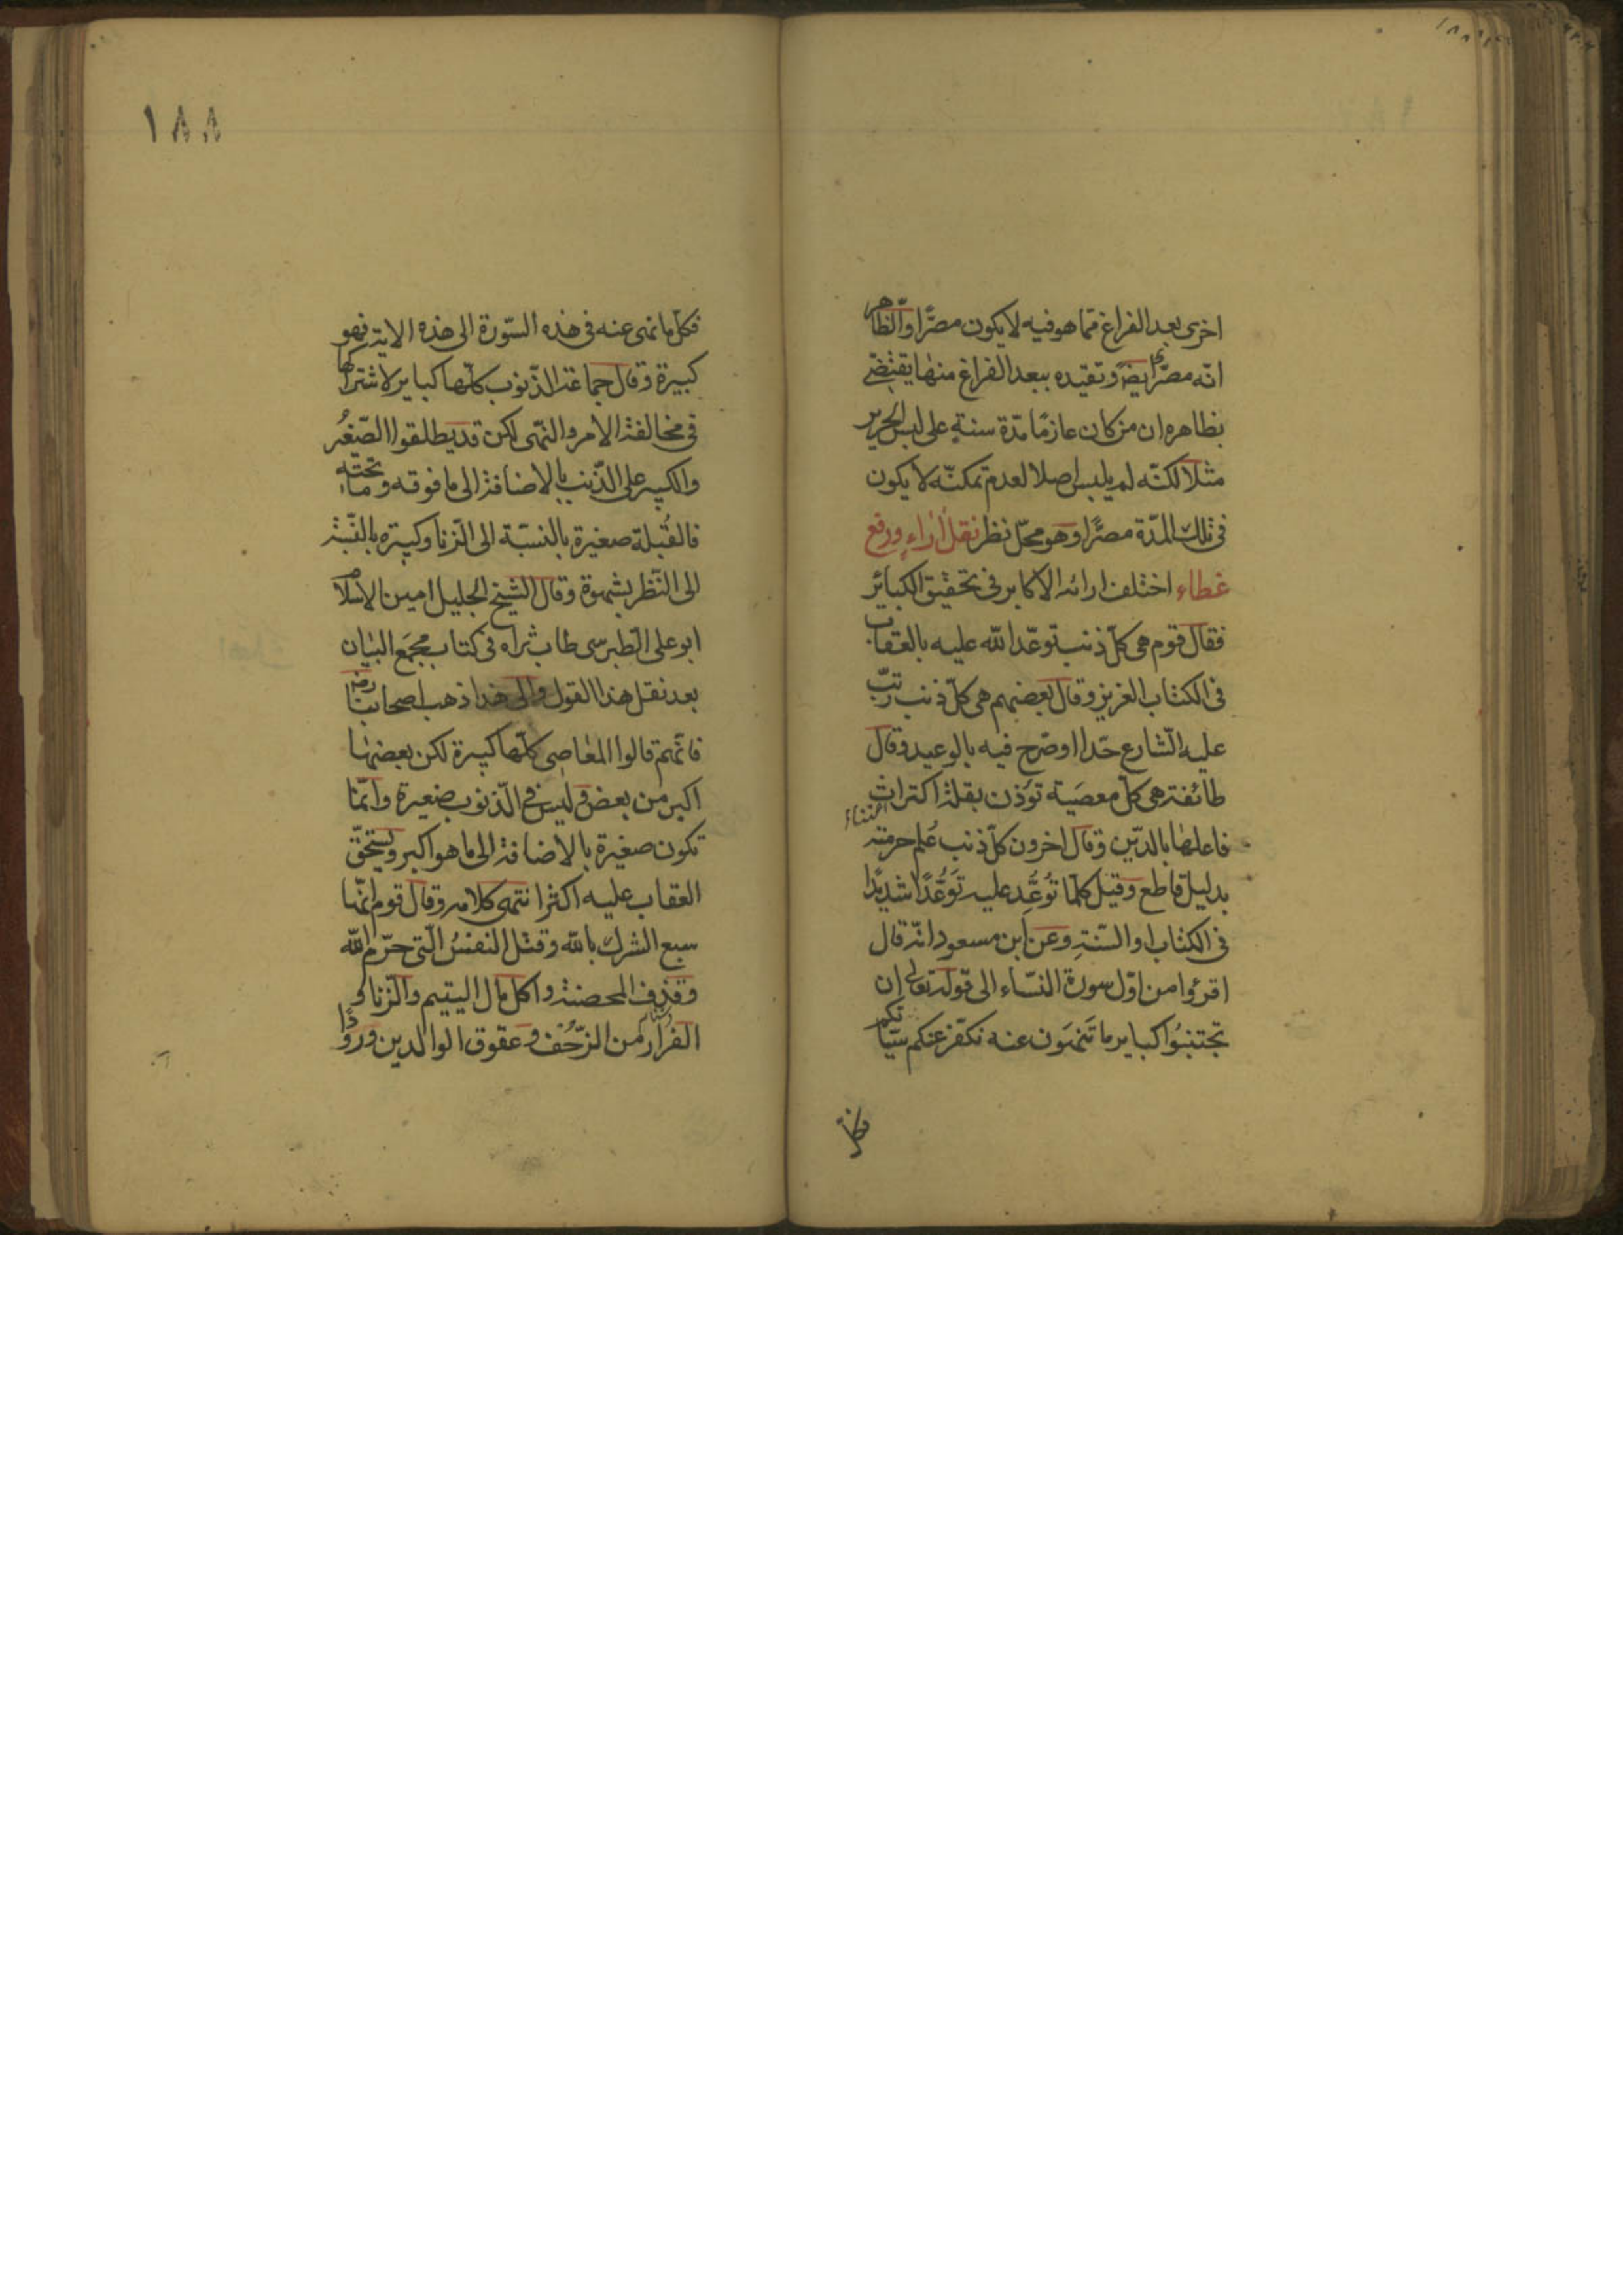 اخرى بعد الفراغ مما هو فيه لا يكون مصرًّا والظاهر
انّه مصرّ ايضا وتقيده ببعد الفراغ منها يقتضى
بظاهره ان من كان عازمًا مدّة سنةٍ على لبس الحرير
مثلا لكنّه لم يلبس اصلا لعدم تمكنّه لا يكون
فى تلك المدّة مصرًّا وهو محلّ نظر نقل اراءٍ ورفع
غطاء اختلف اراء الاكابر فى تحقيق الكبائر
فقال قوم هى كلّ ذنب توعّد الله عليه بالعقاب
فى الكتاب العزيز وقال بعضهم هى كلّ ذنب رتّب
عليه الشّارع حدّا او صّرح فيه بالوعيد وقال
طائفة هى كلّ معصية تؤذن بقلة اكتراث
فاعلها بالدّين وقال اخرون كلّ ذنب عُلم حرمته
بدليل قاطع وقيل كلّما تُوُعِّد عليه تَوَعُّدًا شديدًا
فى الكتاب او السّنةِ وعن ابن مسعود انّه قال
اقرؤا من اوّل سورة النّساء الى قوله تعالى ان
تجتنبُوا كبایر ما تَنهَون عنه نكفّر عنكم سيّاتكم
فكلّ
١٨٨
فكلّ ما نهى عنه فى هذه السّورة الى هذه الاية فهو
كبيرة وقال جماعة الذّنوب كلّها كبایر لاشتراكها
فى مخالفة الامر والنّهى لكن قد يطلقوا الصّغُير
والكبير على الذّنب بالاضافة الى ما فوقه وما تحته
فالقُبلة صغيرة بالنسبَة الى الزّنا وكبيرة بالنّسبة
الى النّظر بشهوة وقال الشيخ الجليل امين الاسلام
ابو على الطّبرسى طاب ثراه فى كتاب مجمَع البيان
بعد نقل هذا القول والى هذا ذهب اصحابنا رض
فانّهم قالوا المعاصى كلّها كبيرة لكن بعضها
اكبر من بعض وليس فى الذّنوب صغيرة وانّما
تكون صغيرة بالاضافة الى ما هو اكبر ويستحقّ
العقاب عليه اكثر انتهى كلامه وقال قوم انّها
سبع الشرك بالله وقتل النفسُ الّتى حرّم الله
وقذف المحصنة واكل مال اليتيم والزّنا و
الفرار من الزّحف وعقوق الوالدين ورووا